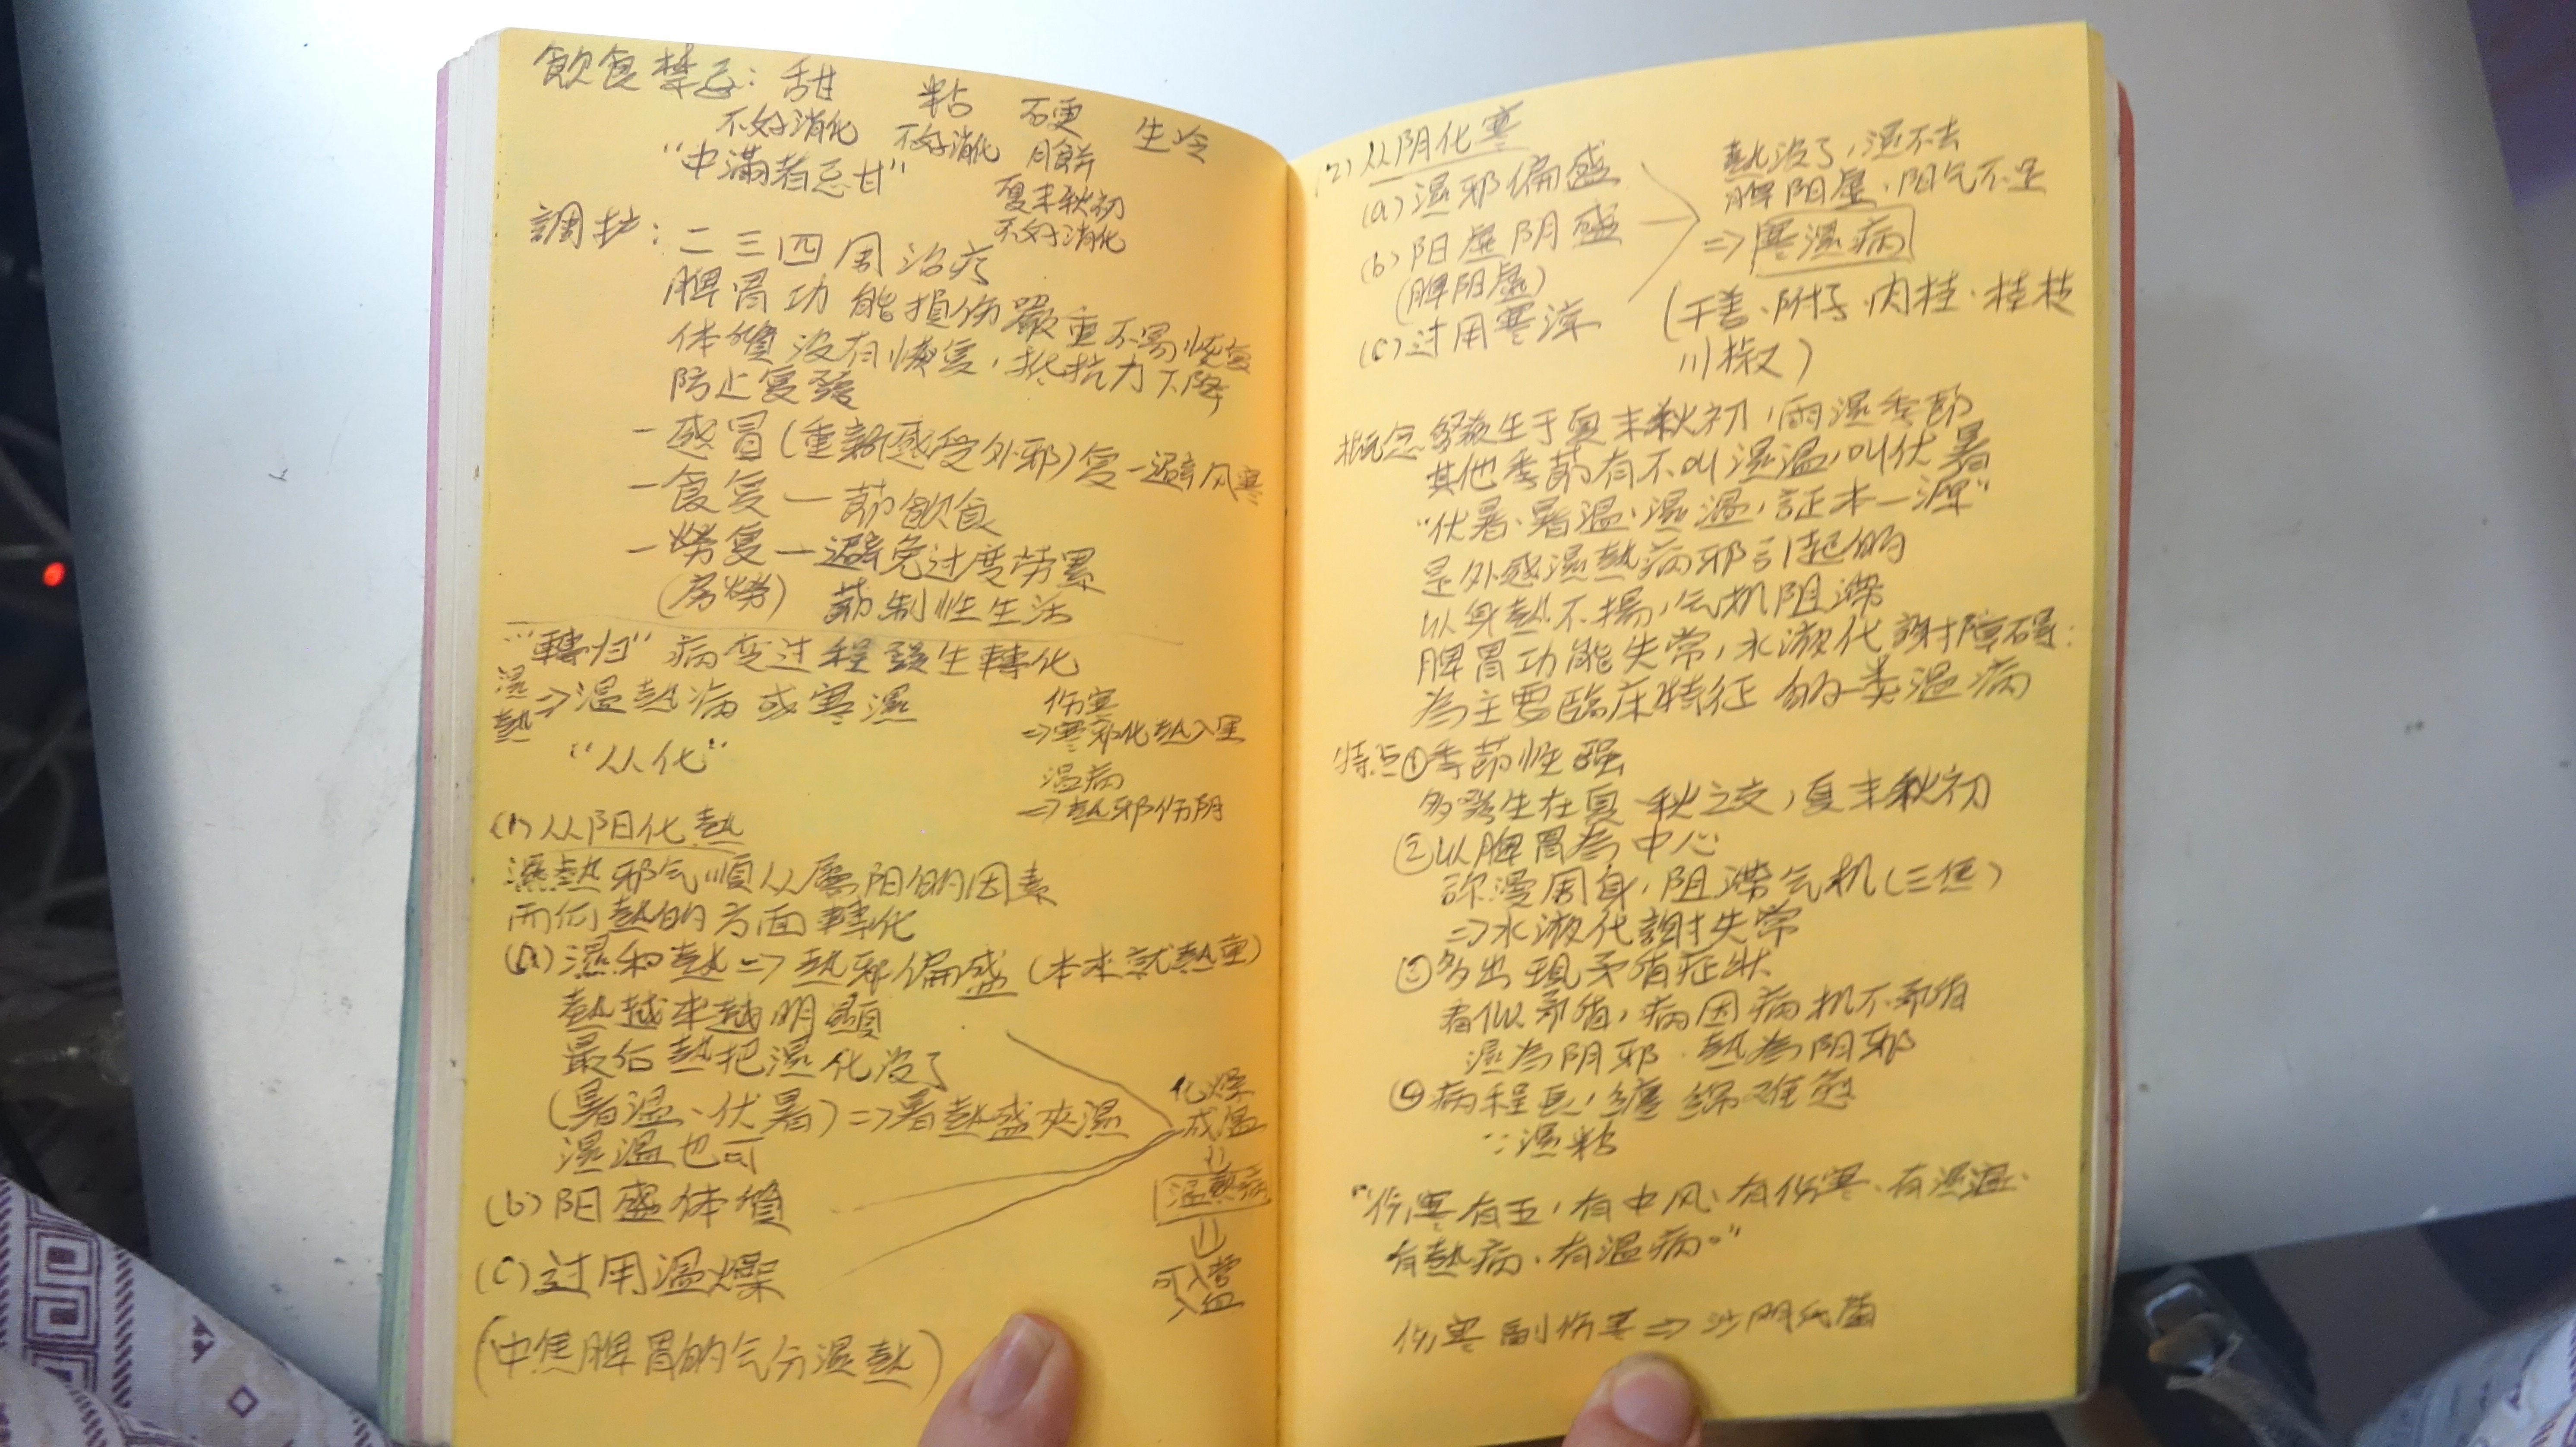 飲食禁忌：甜 粘 硬 生冷
不好消化 不好消化 月餅
"中滿者忌甘" 夏末秋初
不好消化
調护：二三四周治疗
脾胃功能損伤嚴重不易恢复
体質没有恢复，抵抗力下降
防止复發
－感冒(重新感受外邪)复－避风寒
－食复－節飲食
－勞复－避免过度劳累
(房勞) 節制性生活
"轉归" 病变过程發生轉化
湿熱⇒温熱病或寒濕
"从化"
伤寒
⇒寒邪化熱入里
温病
⇒熱邪伤阴
(1)从阳化熱
濕熱邪气順从屬阳的因素
而向熱的方面轉化
(a)濕和熱⇒熱邪偏盛(本来就熱重)
熱越来越明顯
最后熱把濕化没了
(暑温、伏暑)⇒暑熱盛夾濕
濕温也可
(b)阳盛体質
(c)过用温燥
化燥
成温
⇓
温熱病
⇓
可入营
入血
(中焦脾胃的气分濕熱)
(2)从阴化寒
(a)濕邪偏盛
(b)阳虛阴盛
(脾阳虛)
(c)过用寒涼
熱没了，濕不去
脾阳虛，阳气不足
⇒寒濕病
(干姜、附子、肉桂、桂枝
川椒)
概念 發生于夏末秋初，雨濕季節
其他季節有不叫濕温，叫伏暑
"伏暑、暑温、濕温，証本一源"
是外感濕熱病邪引起的
以身熱不揚，气机阻滯
脾胃功能失常，水液代謝障碍
為主要臨床特征的一类温病
特点①季節性强
多發生在夏秋之交，夏末秋初
②以脾胃為中心
弥漫周身，阻滯气机(三焦)
⇒水液代謝失常
③多出現矛盾症狀
看似矛盾，病因病机不矛盾
濕為阴邪．熱為阴邪
④病程長，纏綿难愈
∵濕粘
"伤寒有五，有中风、有伤寒、有濕温、
有熱病、有温病。"
伤寒副伤寒⇒沙門氏菌